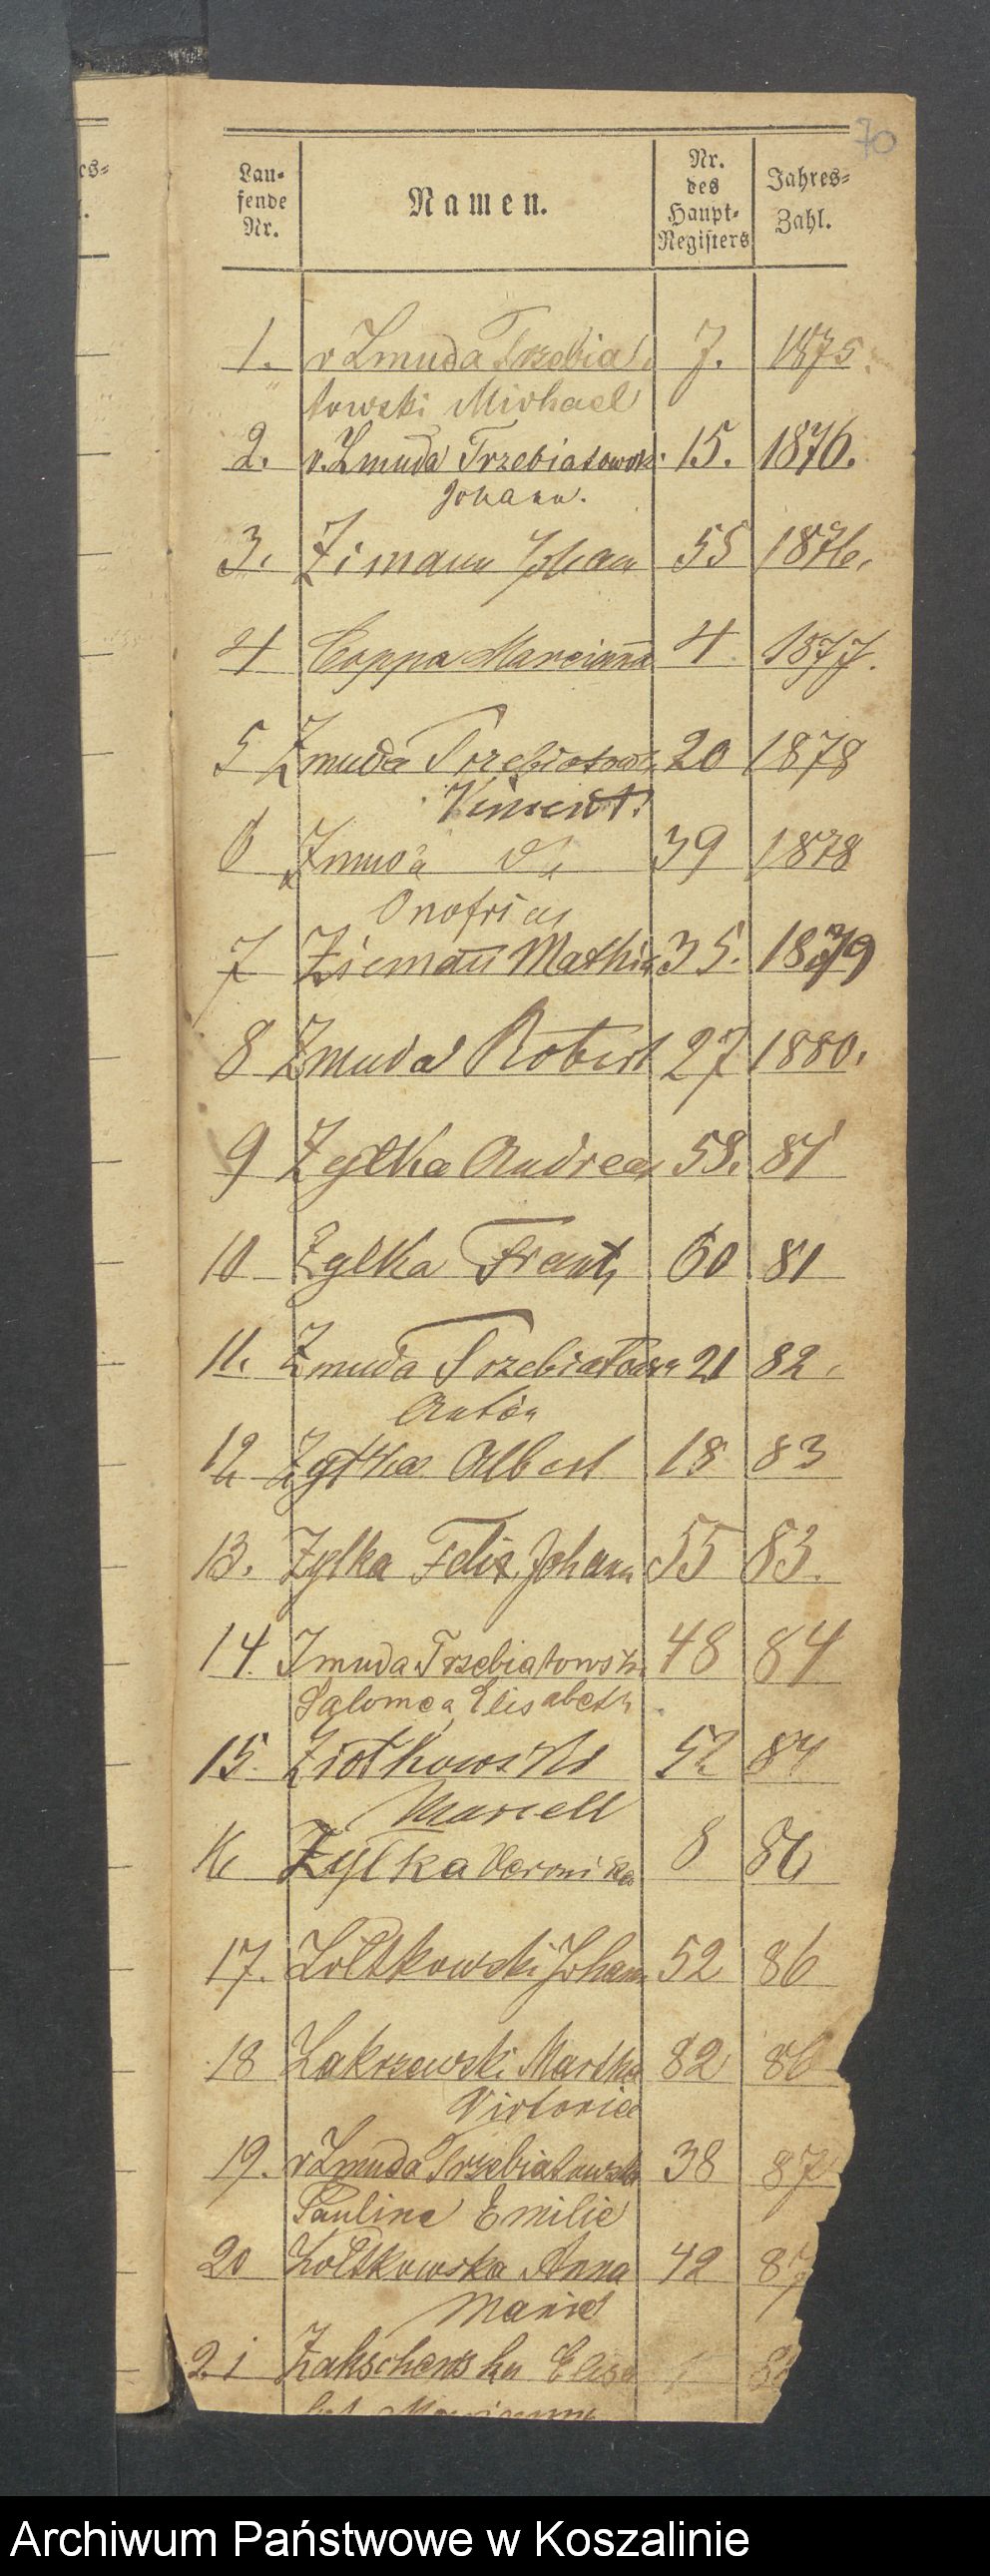 70
Lau-
fende
Nr.
Namen.
Nr.
des
Haupt-
Registers
Jahres-
Zahl.
1. v Zmuda Trzebia 7. 1875
towski Michael
2. v. Zmuda Trzebiatowski 15. 1876.
Johann.
3. Zimann Johann 55 1876.
4 Marcianna 4 1877.
5 Zmuda Trzebiatows 20 1878
Vincent.
6 Zmuda 39 1878
Onofrius
7 Ziemann Mathias 35. 1879
8 Zmuda Robert 27 1880.
9 Zylka Andreas 58. 81
10 Zylka Frantz 60 81
11. Zmuda Trzebiatows 21 82
Anton
12 Zylka Albert 18 83
13. Zylka Felix Johann 55 83.
14. Zmuda Trzebiatowski 48 84
Salomea Elisabeth
15. Ziolkowski 52 84
Marcell
16 Zylka Veronika 8 86
17. Zoltkowski Johann 52 86
18 Zakrzewski Martha 82 86
Victoria
19. v Zmuda Trzebiatowski 38 87
Pauline Emilie
20 Zoltkowska Anna 42 87
Marie
21 Elisa
Archiwum Państwowe w Koszalinie